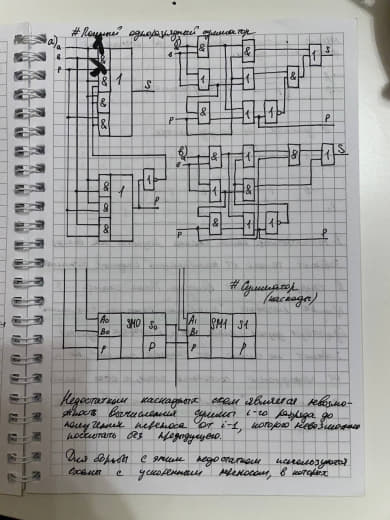 # Полный одноразрядный сумматор
а)
б)
в)
а
в
р
&
&
&
&
1
S
&
&
&
1
1
P
а
в
&
&
1
1
&
1
S
&
P
1
1
P
а
в
&
1
&
1
S
1
&
&
P
1
1
P
# Сумматор
(каскады)
A0
B0
P
SM0
S0
P
A1
B1
P
SM1
S1
P
Недостатком каскадных схем является невозмо-
жность вычисления суммы i-го разряда до
получения переноса от i-1, которого невозможно
посчитать без предыдущего.
Для борьбы с этим недостатком используются
схемы с ускоренным переносом, в которых